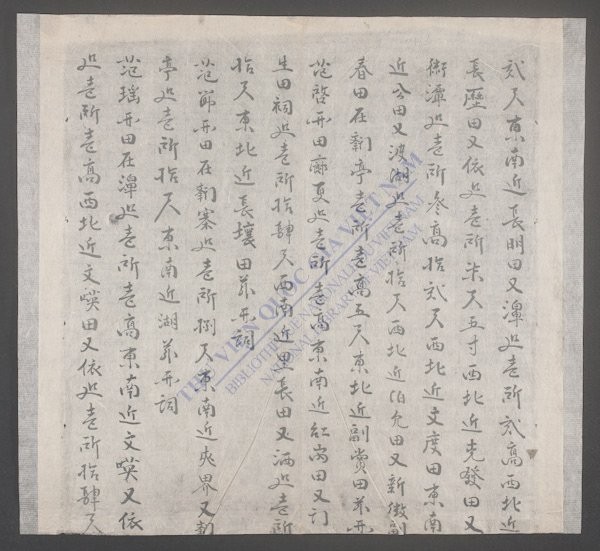 弍尺東南近長明田又潭処壹所弍高西北近
長歷田又依処壹所柒尺五寸西北近光發田又
処壹所叁高拾弍尺西北近文度田東南
近公田又渡湖処壹所拾尺西北近伯允田又新
春田在新亭壹所壹高五尺東北近副賞田並开
范啓开田處壹所壹高東南近紅崗田又訂
生田祠処壹所拾肆尺西南近里長田又洒処壹所
拾尺東北近長壤田並开詞
范節开田在新寨処壹所捌尺東南近夾界又新
亭処壹所拾尺東南近湖並开詞
范瑶开田在潭処壹所壹高東南近文嘆又依
処壹所壹高西北近文嘆田又依処壹所拾肆尺
THƯ VIỆN QUỐC GIA VIỆT NAM
BIBLIOTHÈQUE NATIONALE DU VIETNAM
NATIONAL LIBRARY OF VIETNAM